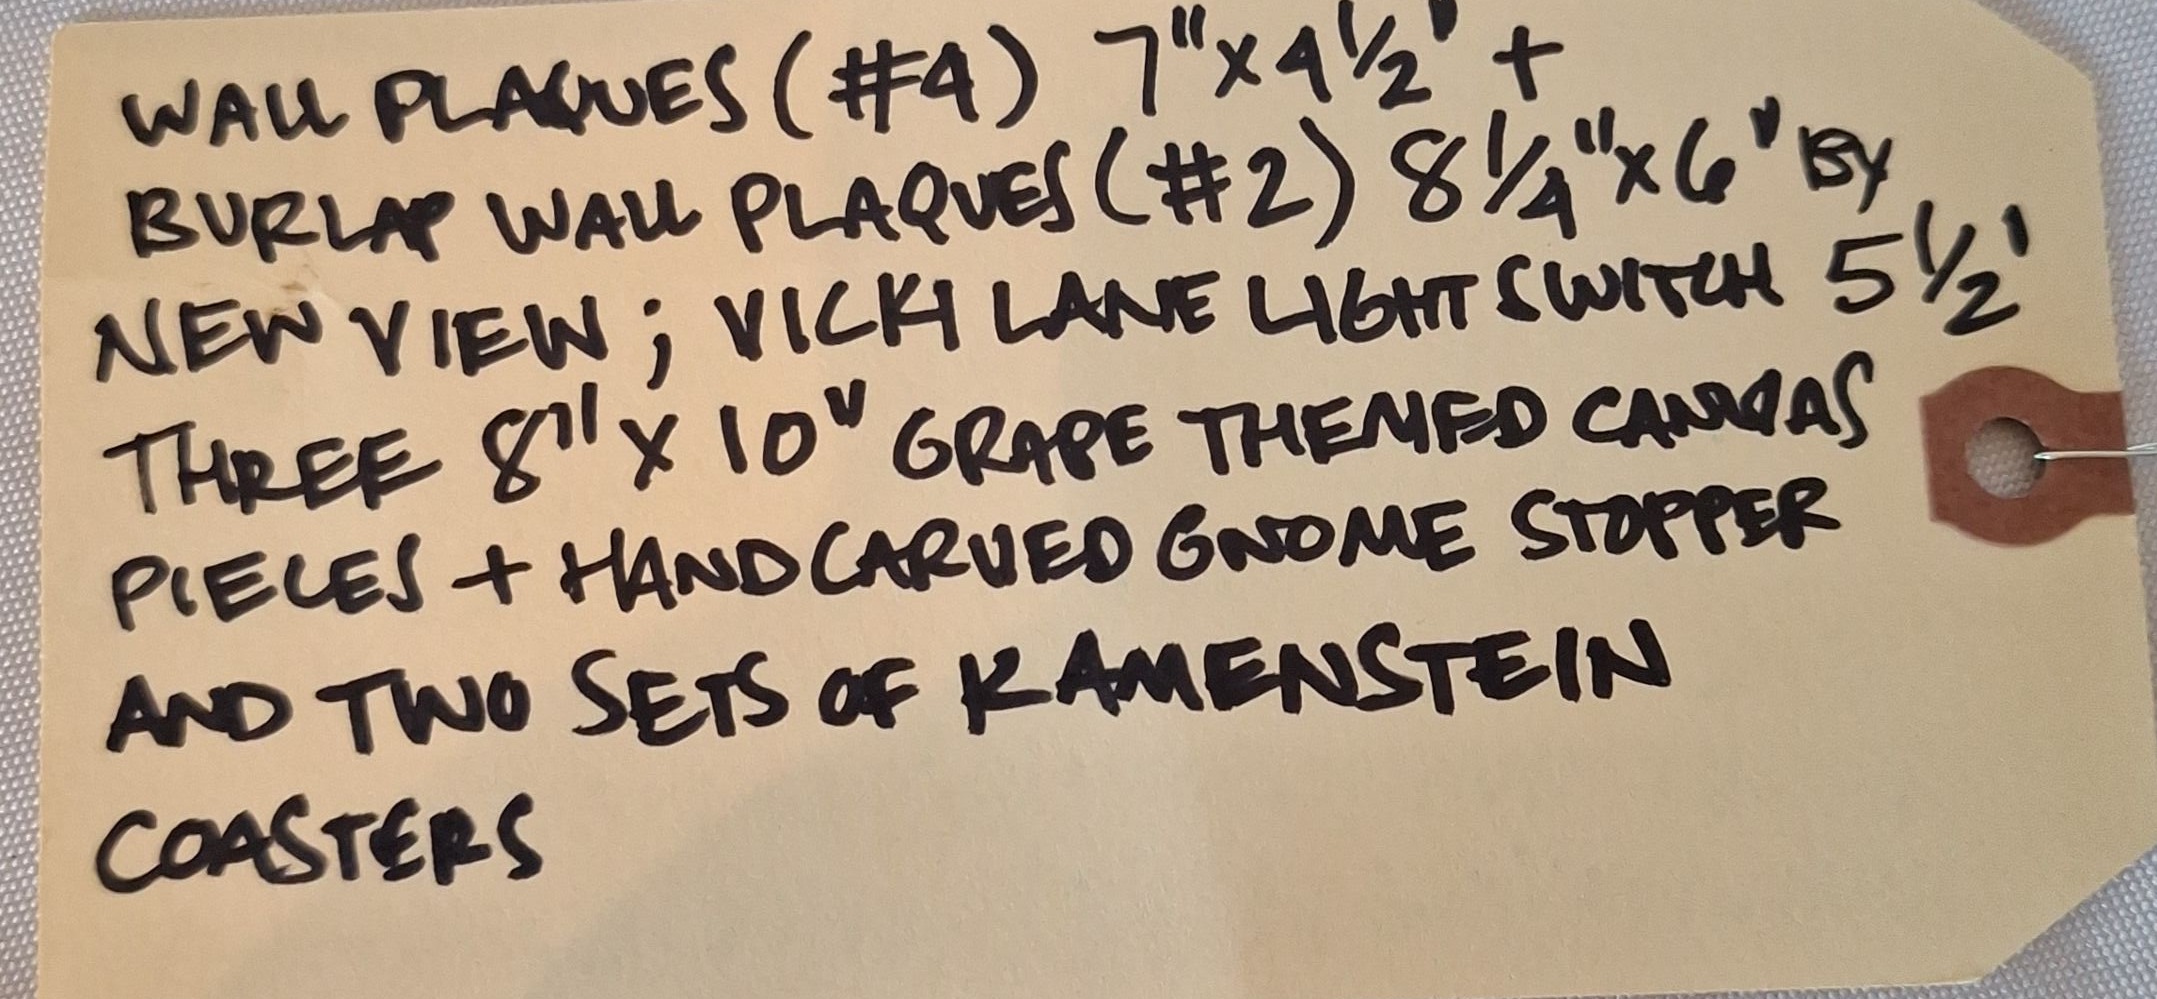 WALL PLAQUES (#4) 7"x4½" +
BURLAP WALL PLAQUES (#2) 8¼"x6" BY
NEW VIEW; VICKI LANE LIGHT SWITCH 5½'
THREE 8"x10" GRAPE THEMED CANVAS
PIECES + HAND CARVED GNOME STOPPER
AND TWO SETS OF KAMENSTEIN
COASTERS